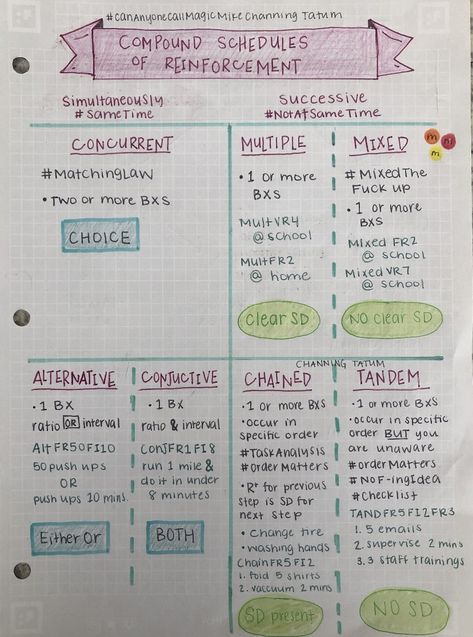 #CanAnyoneCallMagicMikeChanning Tatum
COMPOUND SCHEDULES
OF REINFORCEMENT
Simultaneously
#SameTime
Successive
#NotAtSameTime
CONCURRENT
#MatchingLaw
• Two or more BXS
CHOICE
MULTIPLE
• 1 or more
BXS
MultVR4
@ school
MultFR2
@ home
Clear SD
MIXED
m
m
m
# MixedThe
Fuck up
• 1 or more
BXS
Mixed FR2
@ school
Mixed VR7
@ school
NO clear SD
ALTERNATIVE
• 1 BX
ratio OR interval
AltFR50FI10
50 push ups
OR
push ups 10 mins.
Either Or
CONJUCTIVE
• 1 BX
ratio & interval
ConJFR1FI8
run 1 mile &
do it in under
8 minutes
BOTH
CHANNING TATUM
CHAINED
• 1 or more BXS
• occur in
specific order
#TaskAnalysis
#OrderMatters
• R+ for previous
step is SD for
next step
• Change tire
• washing hands
ChainFR5FI2
1. fold 5 shirts
2. vaccuum 2 mins
SD present
TANDEM
• 1 or more BXS
• occur in specific
order BUT you
are unaware
#orderMatters
#NOF-ingIdea
#Checklist
TANDFR5FI2FR3
1. 5 emails
2. supervise 2 mins
3. 3 staff trainings
NO SD